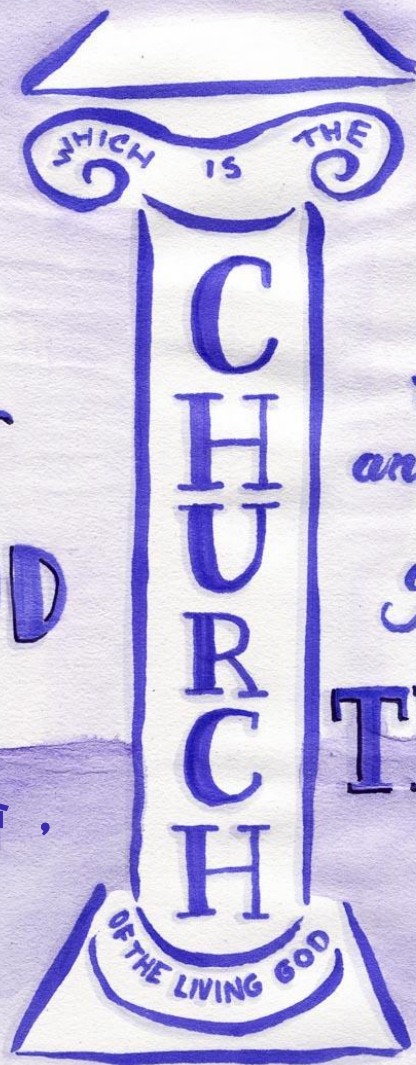 WHICH IS THE
CHURCH
OF THE LIVING GOD
D
an